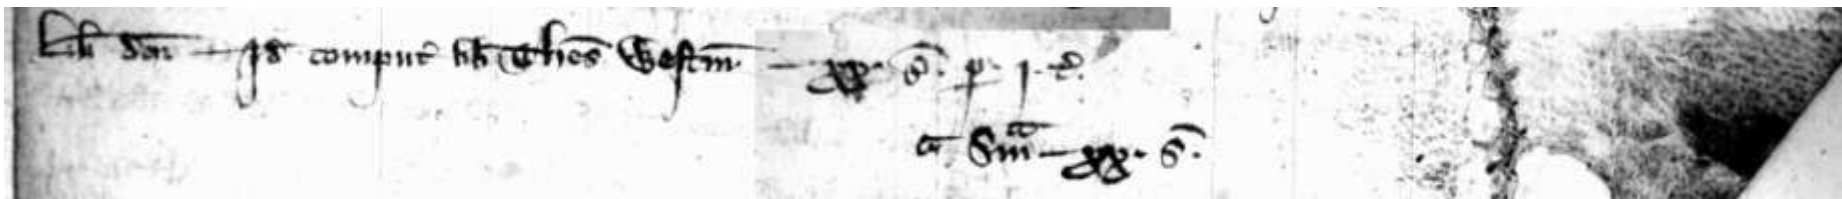 Lib den̄ — Id comput lib Thes Westm̄ — xx. s̄. p. j. t.
Sm̄a — xx. s̄.